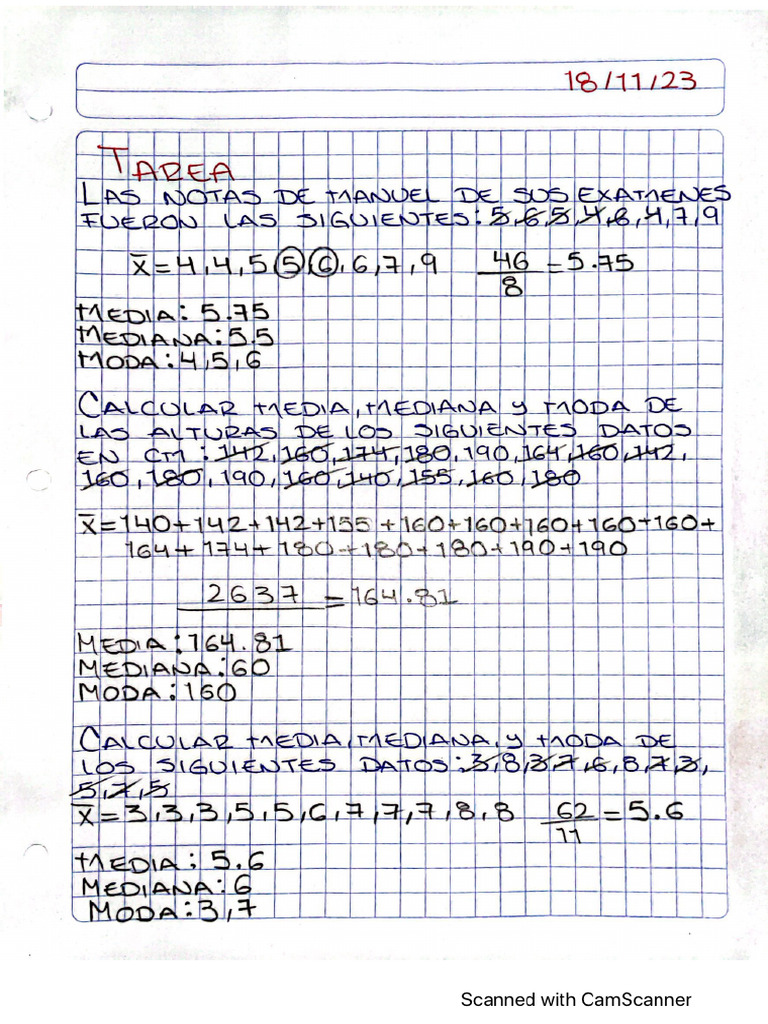 18/11/23
TAREA
LAS NOTAS DE MANUEL DE SUS EXAMENES
FUERON LAS SIGUIENTES: 5,6,5,4,6,4,7,9
x̄=4,4,5,5,6,6,7,9 46/8=5.75
MEDIA: 5.75
MEDIANA:5.5
MODA:4,5,6
CALCULAR MEDIA, MEDIANA Y MODA DE
LAS ALTURAS DE LOS SIGUIENTES DATOS
EN CM: 142,160,174,180,190,164,160,142,
160,180,190,160,140,155,160,180
x̄=140+142+142+155+160+160+160+160+160+
164+174+180+180+180+190+190
2637 =164.81
MEDIA:164.81
MEDIANA:60
MODA:160
CALCULAR MEDIA, MEDIANA, Y MODA DE
LOS SIGUIENTES DATOS:3,8,3,7,6,8,7,3,
5,7,5
x̄=3,3,3,5,5,6,7,7,7,8,8 62/11=5.6
MEDIA: 5.6
MEDIANA:6
MODA:3,7
Scanned with CamScanner